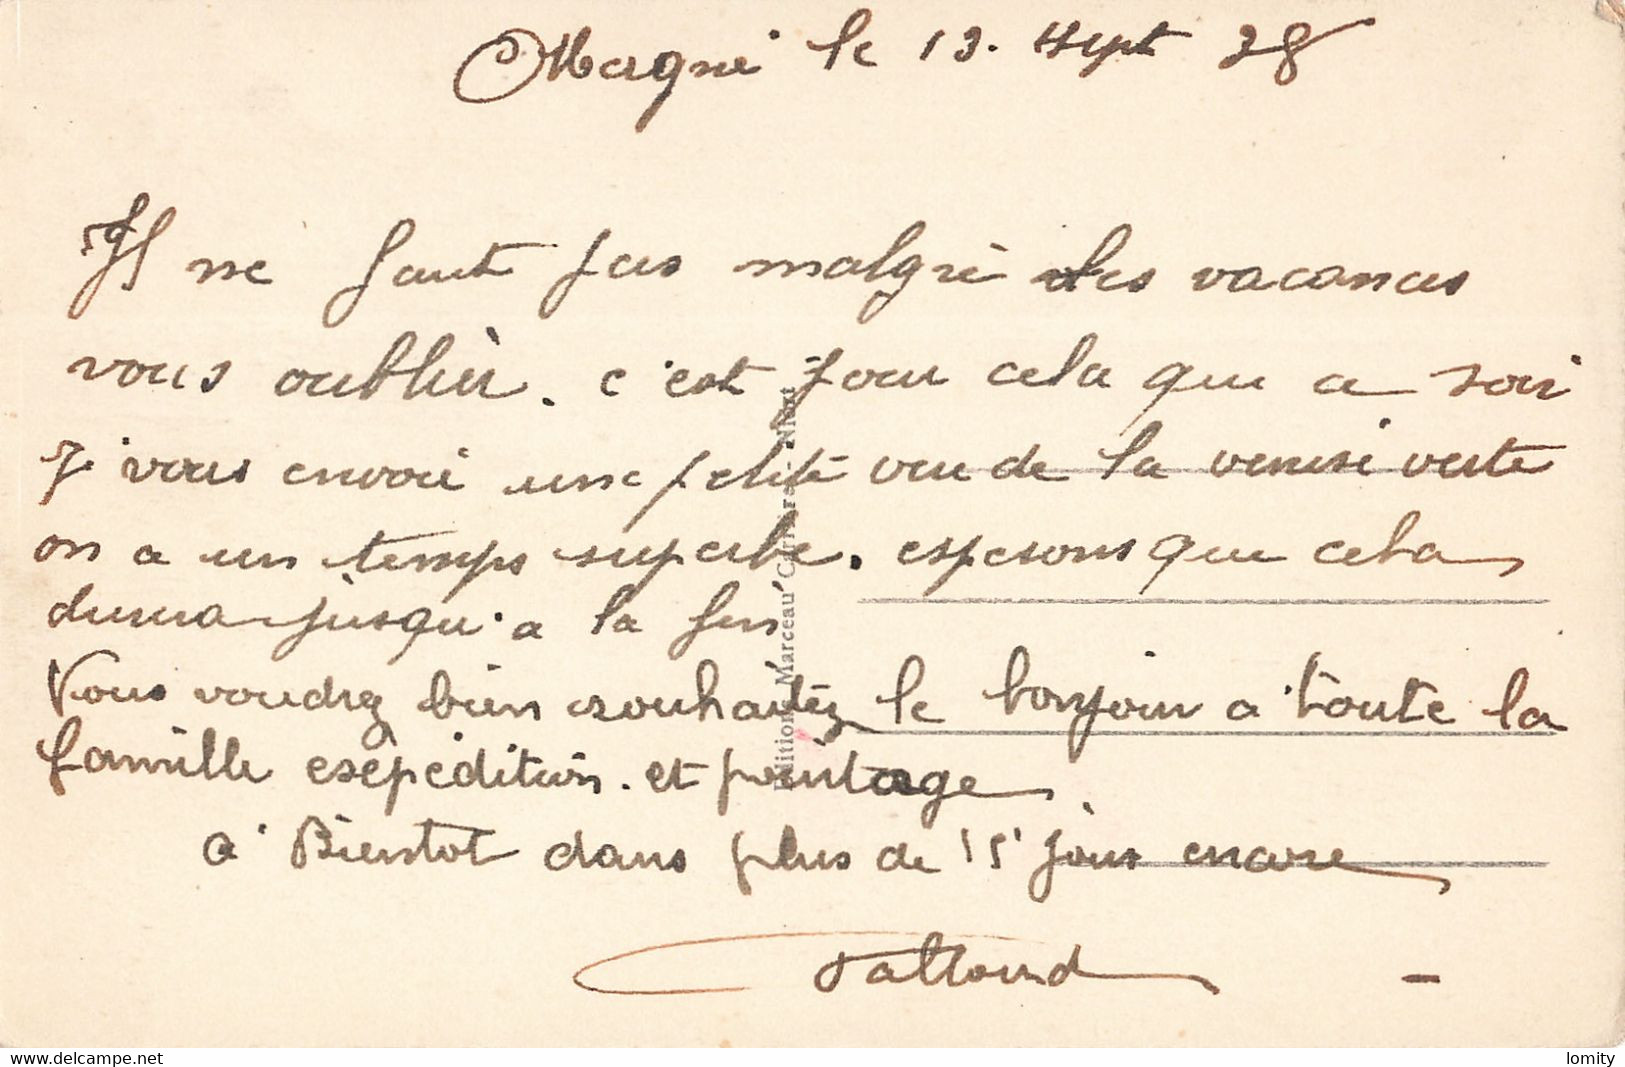 Magné le 13. Sept 38
Il ne faut pas malgré les vacances
vous oublier. c'est pour cela que ce soir
je vous envoie une petite vue de la venise verte
on a un temps superbe. esperons que cela
durera jusqu'a la fin
Vous voudrez bien souhaitez le bonjour a toute la
famille exépédition. et pointage.
a Bientot dans plus de 15 jours encore
Editions Marceau Carrière Niort
delcampe.net
lomity